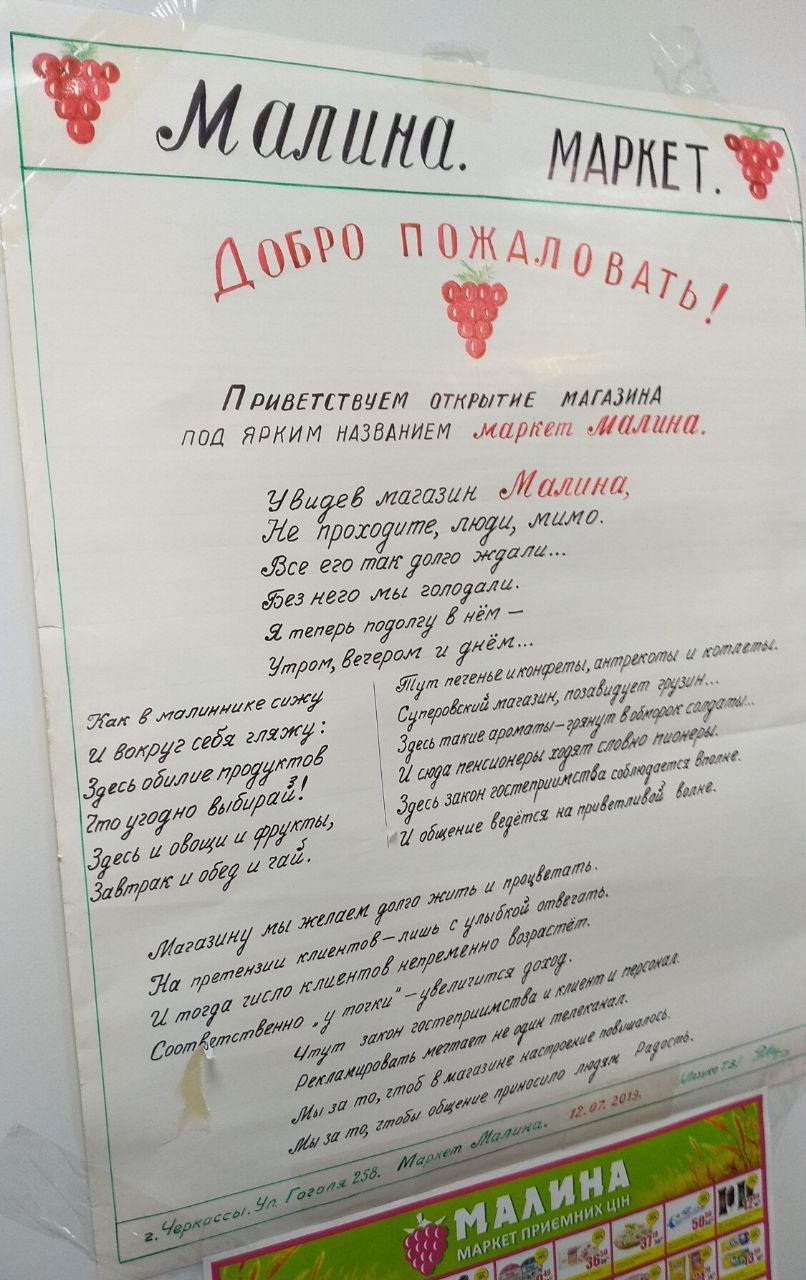 Малина. МАРКЕТ.
ДОБРО ПОЖАЛОВАТЬ!
ПРИВЕТСТВУЕМ ОТКРЫТИЕ МАГАЗИНА
ПОД ЯРКИМ НАЗВАНИЕМ маркет Малина.
Увидев магазин Малина,
Не проходите, люди, мимо.
Все его так долго ждали...
Без него мы голодали.
Я теперь подолгу в нём —
Утром, вечером и днём...
Как в малиннике сижу
И вокруг себя гляжу:
Здесь обилие продуктов
Что угодно выбирай!
Здесь и овощи и фрукты,
Завтрак и обед и чай.
Тут печенье и конфеты, антрекоты и котлеты.
Суперовский магазин, позавидует грузин...
Здесь такие ароматы – грянут в обморок солдаты...
И сюда пенсионеры ходят словно пионеры.
Здесь закон гостеприимства соблюдается вполне.
И общение ведётся на приветливой волне.
Магазину мы желаем долго жить и процветать.
На претензии клиентов – лишь с улыбкой отвечать.
И тогда число клиентов непременно возрастёт.
Соответственно „у точки" – увеличится доход.
Чтут закон гостеприимства и клиент и персонал.
Рекламировать мечтает не один телеканал.
Мы за то, чтоб в магазине настроение повышалось.
Мы за то, чтобы общение приносило людям Радость.
г. Черкассы. Ул. Гоголя 258. Маркет Малина. 12.07.2019.
МАЛИНА
МАРКЕТ ПРИЄМНИХ ЦІН